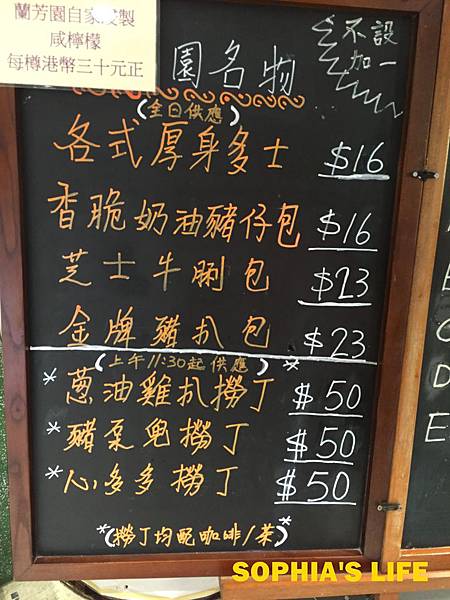 蘭芳園自家淺製
咸檸檬
每樽港幣三十元正
園名物
不設
加一
(全日供應)
各式厚身多士 $16
香脆奶油豬仔包 $16
芝士牛脷包 $23
金牌豬扒包 $23
(上午11:30起供應) *
*蔥油雞扒撈丁 $50
*豬柔兒撈丁 $50
*心多多撈丁 $50
*(撈丁均配咖啡/茶)*
D
E
SOPHIA'S LIFE